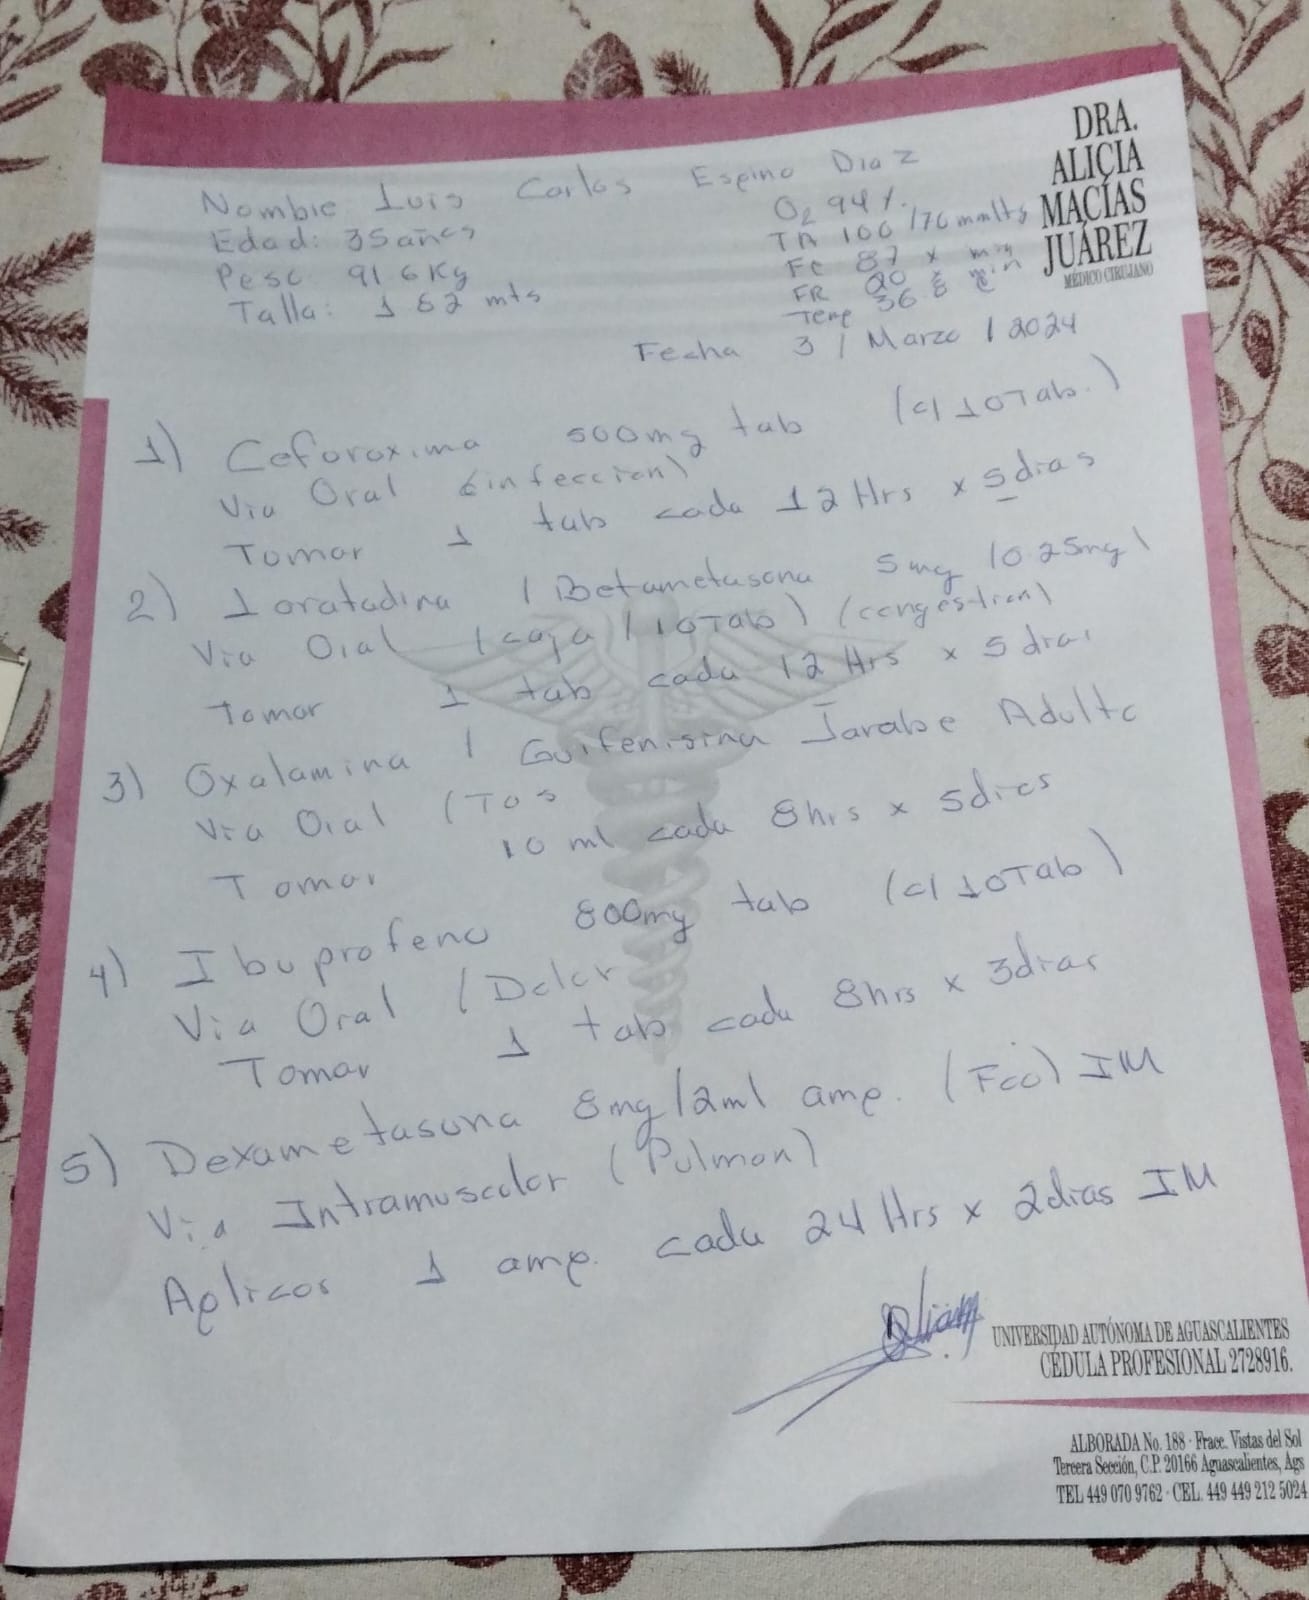 DRA.
ALICIA
MACÍAS
JUÁREZ
MÉDICO CIRUJANO
Nombre Luis Carlos Espino Diaz
Edad: 35 años
Peso 91.6 Kg
Talla: 1 82 mts
O2 94%.
TA 100/70 mmHg
FC 87 x min
FR 20 x min
Temp 36.8 °C
Fecha 3 / Marzo / 2024
1) Cefuroxima 500mg tab (c/10Tab.)
Via Oral (infeccion)
Tomar 1 tab cada 12 Hrs x 5 dias
2) Loratadina / Betametasona 5mg /0.25mg/
Via Oral /caja/10Tab) (congestion)
Tomar 1 tab cada 12 Hrs x 5 dias
3) Oxalamina / Guifenisina Jarabe Adulto
Via Oral (Tos
Tomar 10 ml cada 8hrs x 5dias
4) Ibuprofeno 800mg tab (c/10Tab)
Via Oral (Dolor
Tomar 1 tab cada 8hrs x 3dias
5) Dexametasona 8mg/2ml amp. (Fco) IM
Via Intramuscular (Pulmon)
Aplicar 1 amp. cada 24 Hrs x 2dias IM
UNIVERSIDAD AUTÓNOMA DE AGUASCALIENTES
CÉDULA PROFESIONAL 2728916.
ALBORADA No. 188 · Fracc. Vistas del Sol
Tercera Sección, C.P. 20166 Aguascalientes, Ags
TEL 449 070 9762 · CEL. 449 449 212 5024